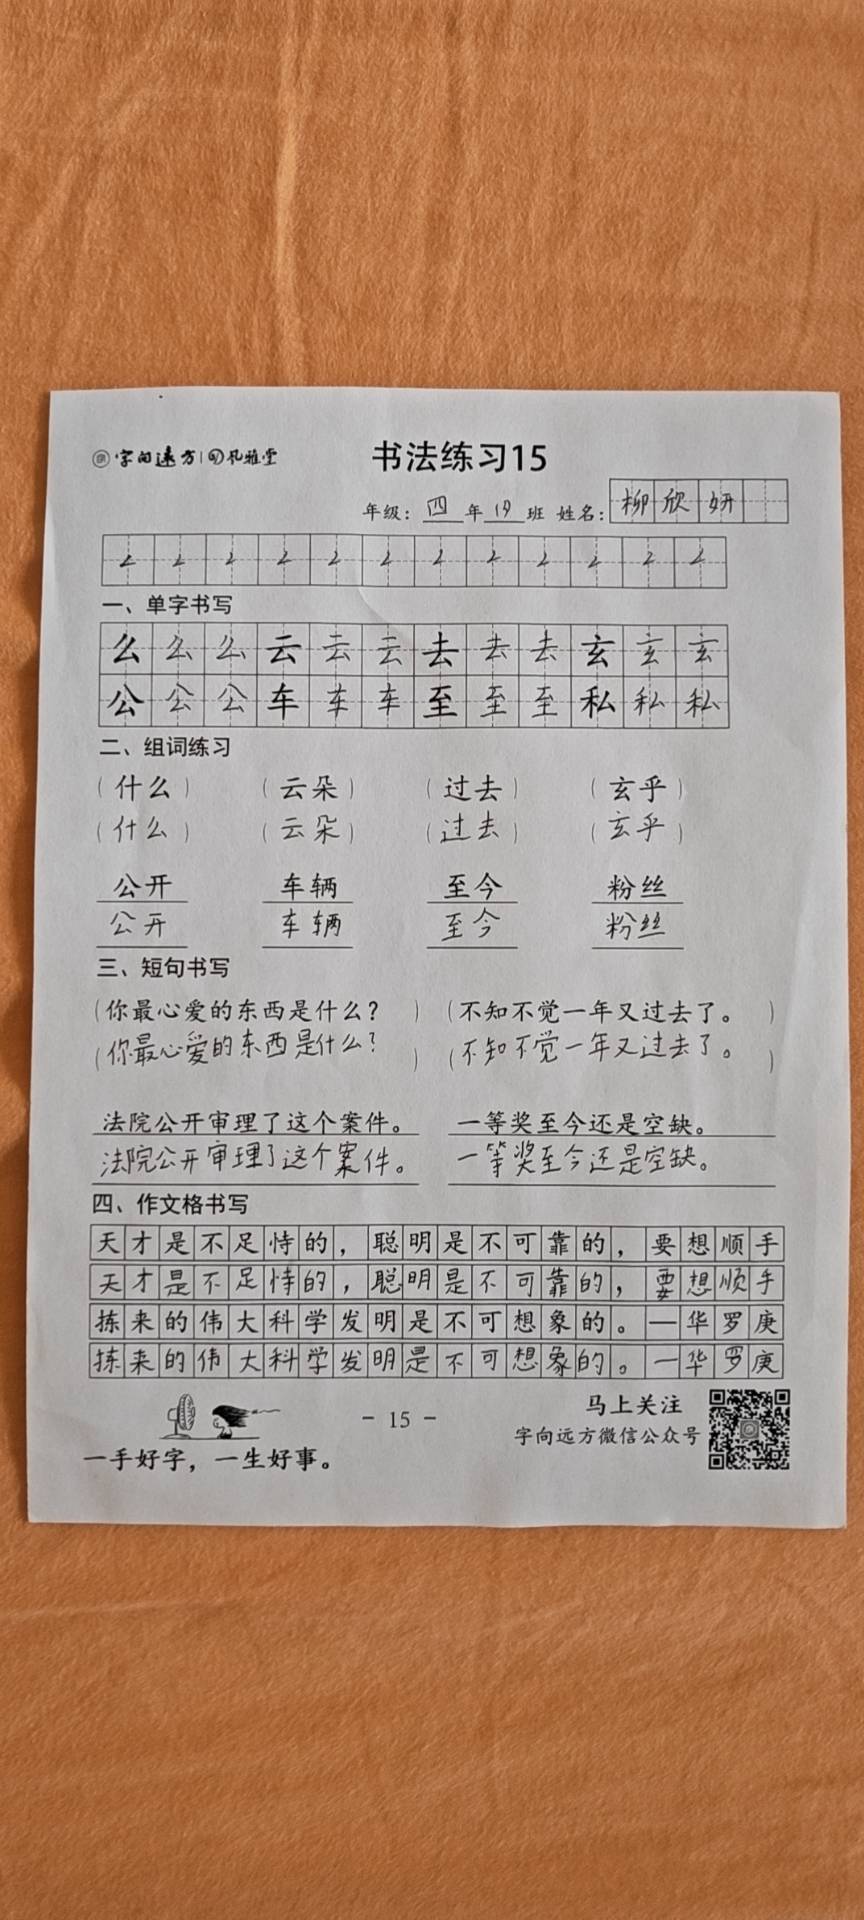 字向远方 风雅堂
书法练习15
年级：四年19班 姓名：柳欣妍
一、单字书写
么么么云云云去去去玄玄玄
公公公车车车至至至私私私
二、组词练习
（什么） （云朵） （过去） （玄乎）
（什么） （云朵） （过去） （玄乎）
公开 车辆 至今 粉丝
公开 车辆 至今 粉丝
三、短句书写
（你最心爱的东西是什么？ ） （不知不觉一年又过去了。 ）
（你最心爱的东西是什么？ ） （不知不觉一年又过去了。 ）
法院公开审理了这个案件。 一等奖至今还是空缺。
法院公开审理了这个案件。 一等奖至今还是空缺。
四、作文格书写
天才是不足恃的，聪明是不可靠的，要想顺手
天才是不足恃的，聪明是不可靠的，要想顺手
拣来的伟大科学发明是不可想象的。—华罗庚
拣来的伟大科学发明是不可想象的。—华罗庚
马上关注
- 15 -
字向远方微信公众号
一手好字，一生好事。